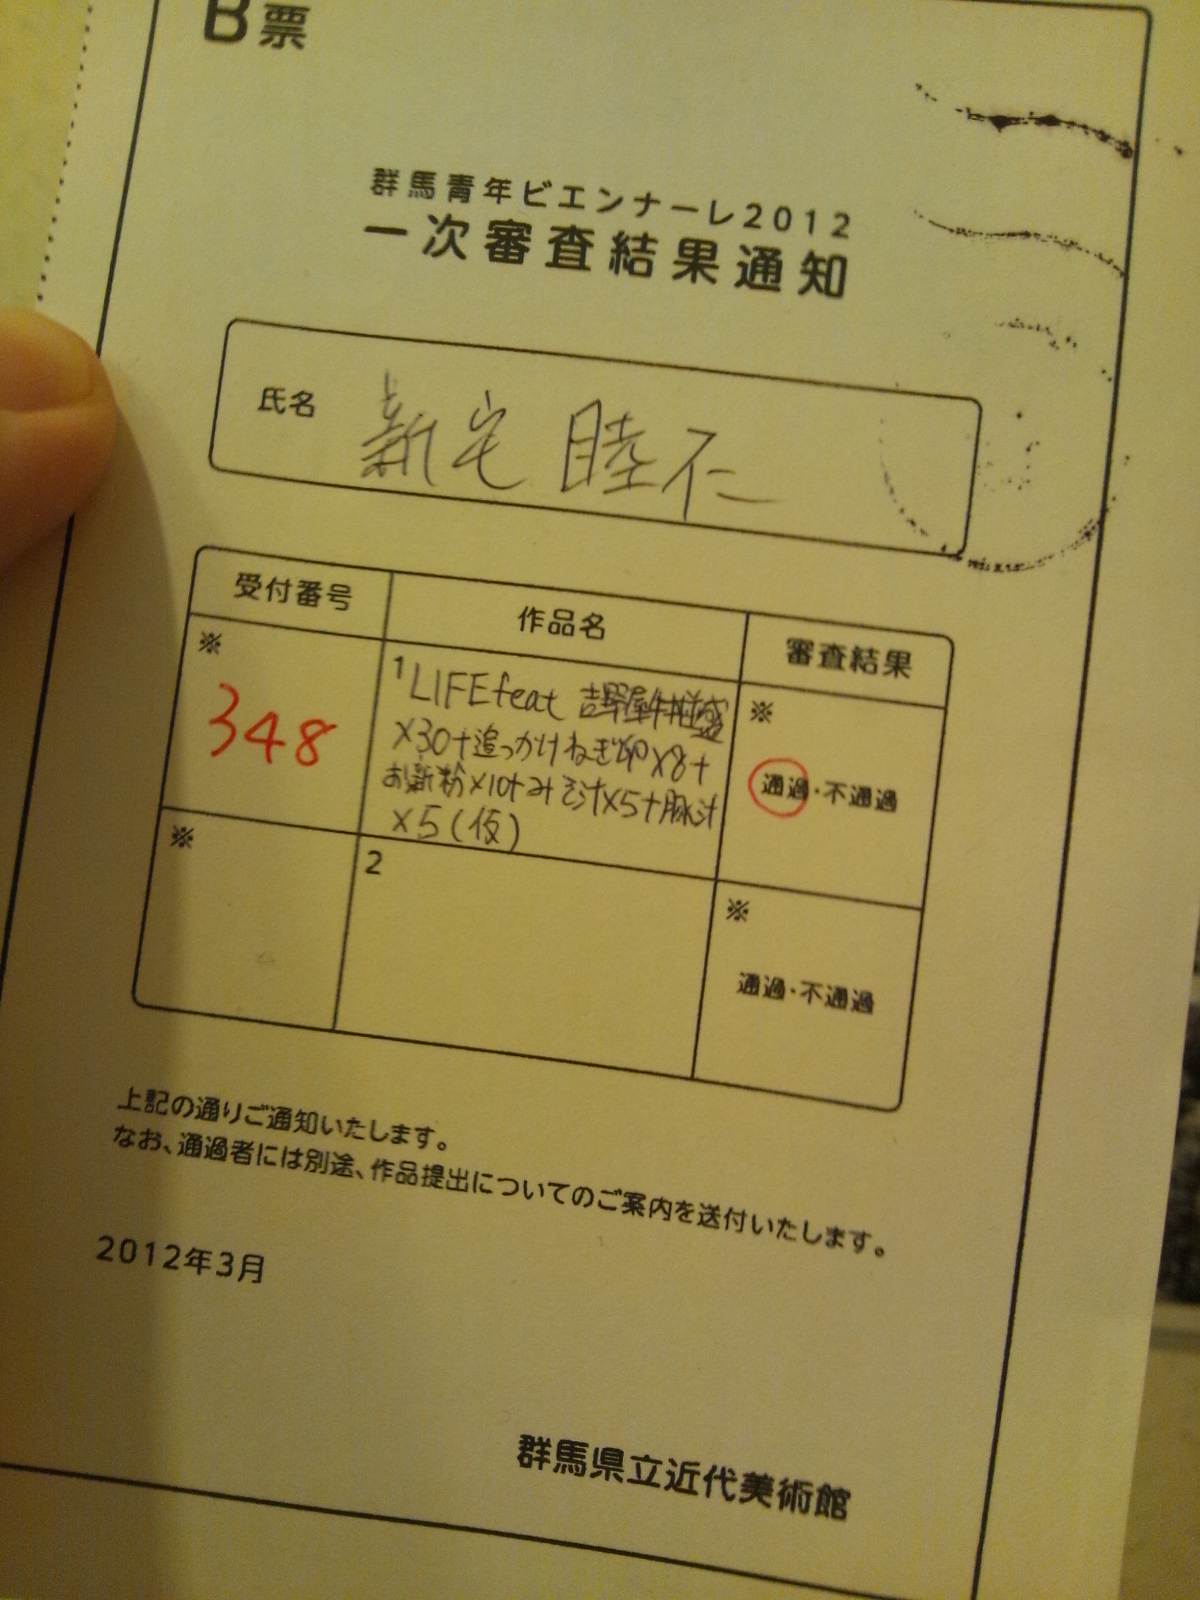 B票
群馬青年ビエンナーレ2012
一次審査結果通知
氏名 新宅 睦仁
受付番号 作品名 審査結果
※ 348
1 LIFE feat 吉野屋牛丼並盛
×30+追っかけねぎ卵×8+
お新粉×10+みそ汁×5+豚汁
×5(仮)
※ 通過・不通過
※
2
※ 通過・不通過
上記の通りご通知いたします。
なお、通過者には別途、作品提出についてのご案内を送付いたします。
2012年3月
群馬県立近代美術館